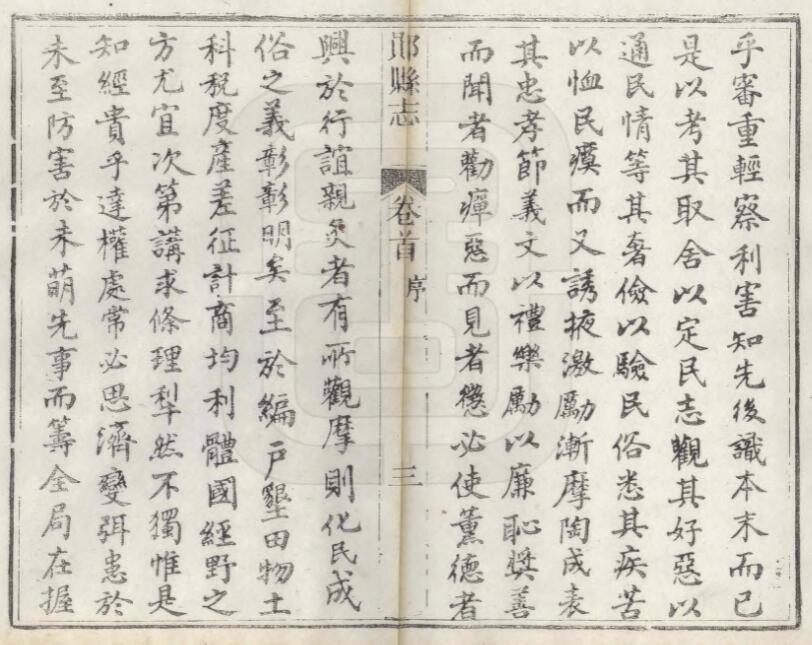 乎審重輕察利害知先後識本末而已
是以考其取舍以定民志觀其好惡以
通民情等其奢儉以驗民俗悉其疾苦
以恤民瘼而又誘掖激勵漸摩陶成表
其忠孝節義文以禮樂勵以廉恥奬善
而聞者勸癉惡而見者懲必使薰德者
鄖縣志 卷首 序 三
興於行誼親炙者有所觀摩則化民成
俗之義彰彰明矣至於編戶墾田物土
科税度產差征計商均利體國經野之
方尤宜次第講求條理犂然不獨惟是
知經貴乎達權處常必思濟變弭患於
未至防害於未萌先事而籌全局在握